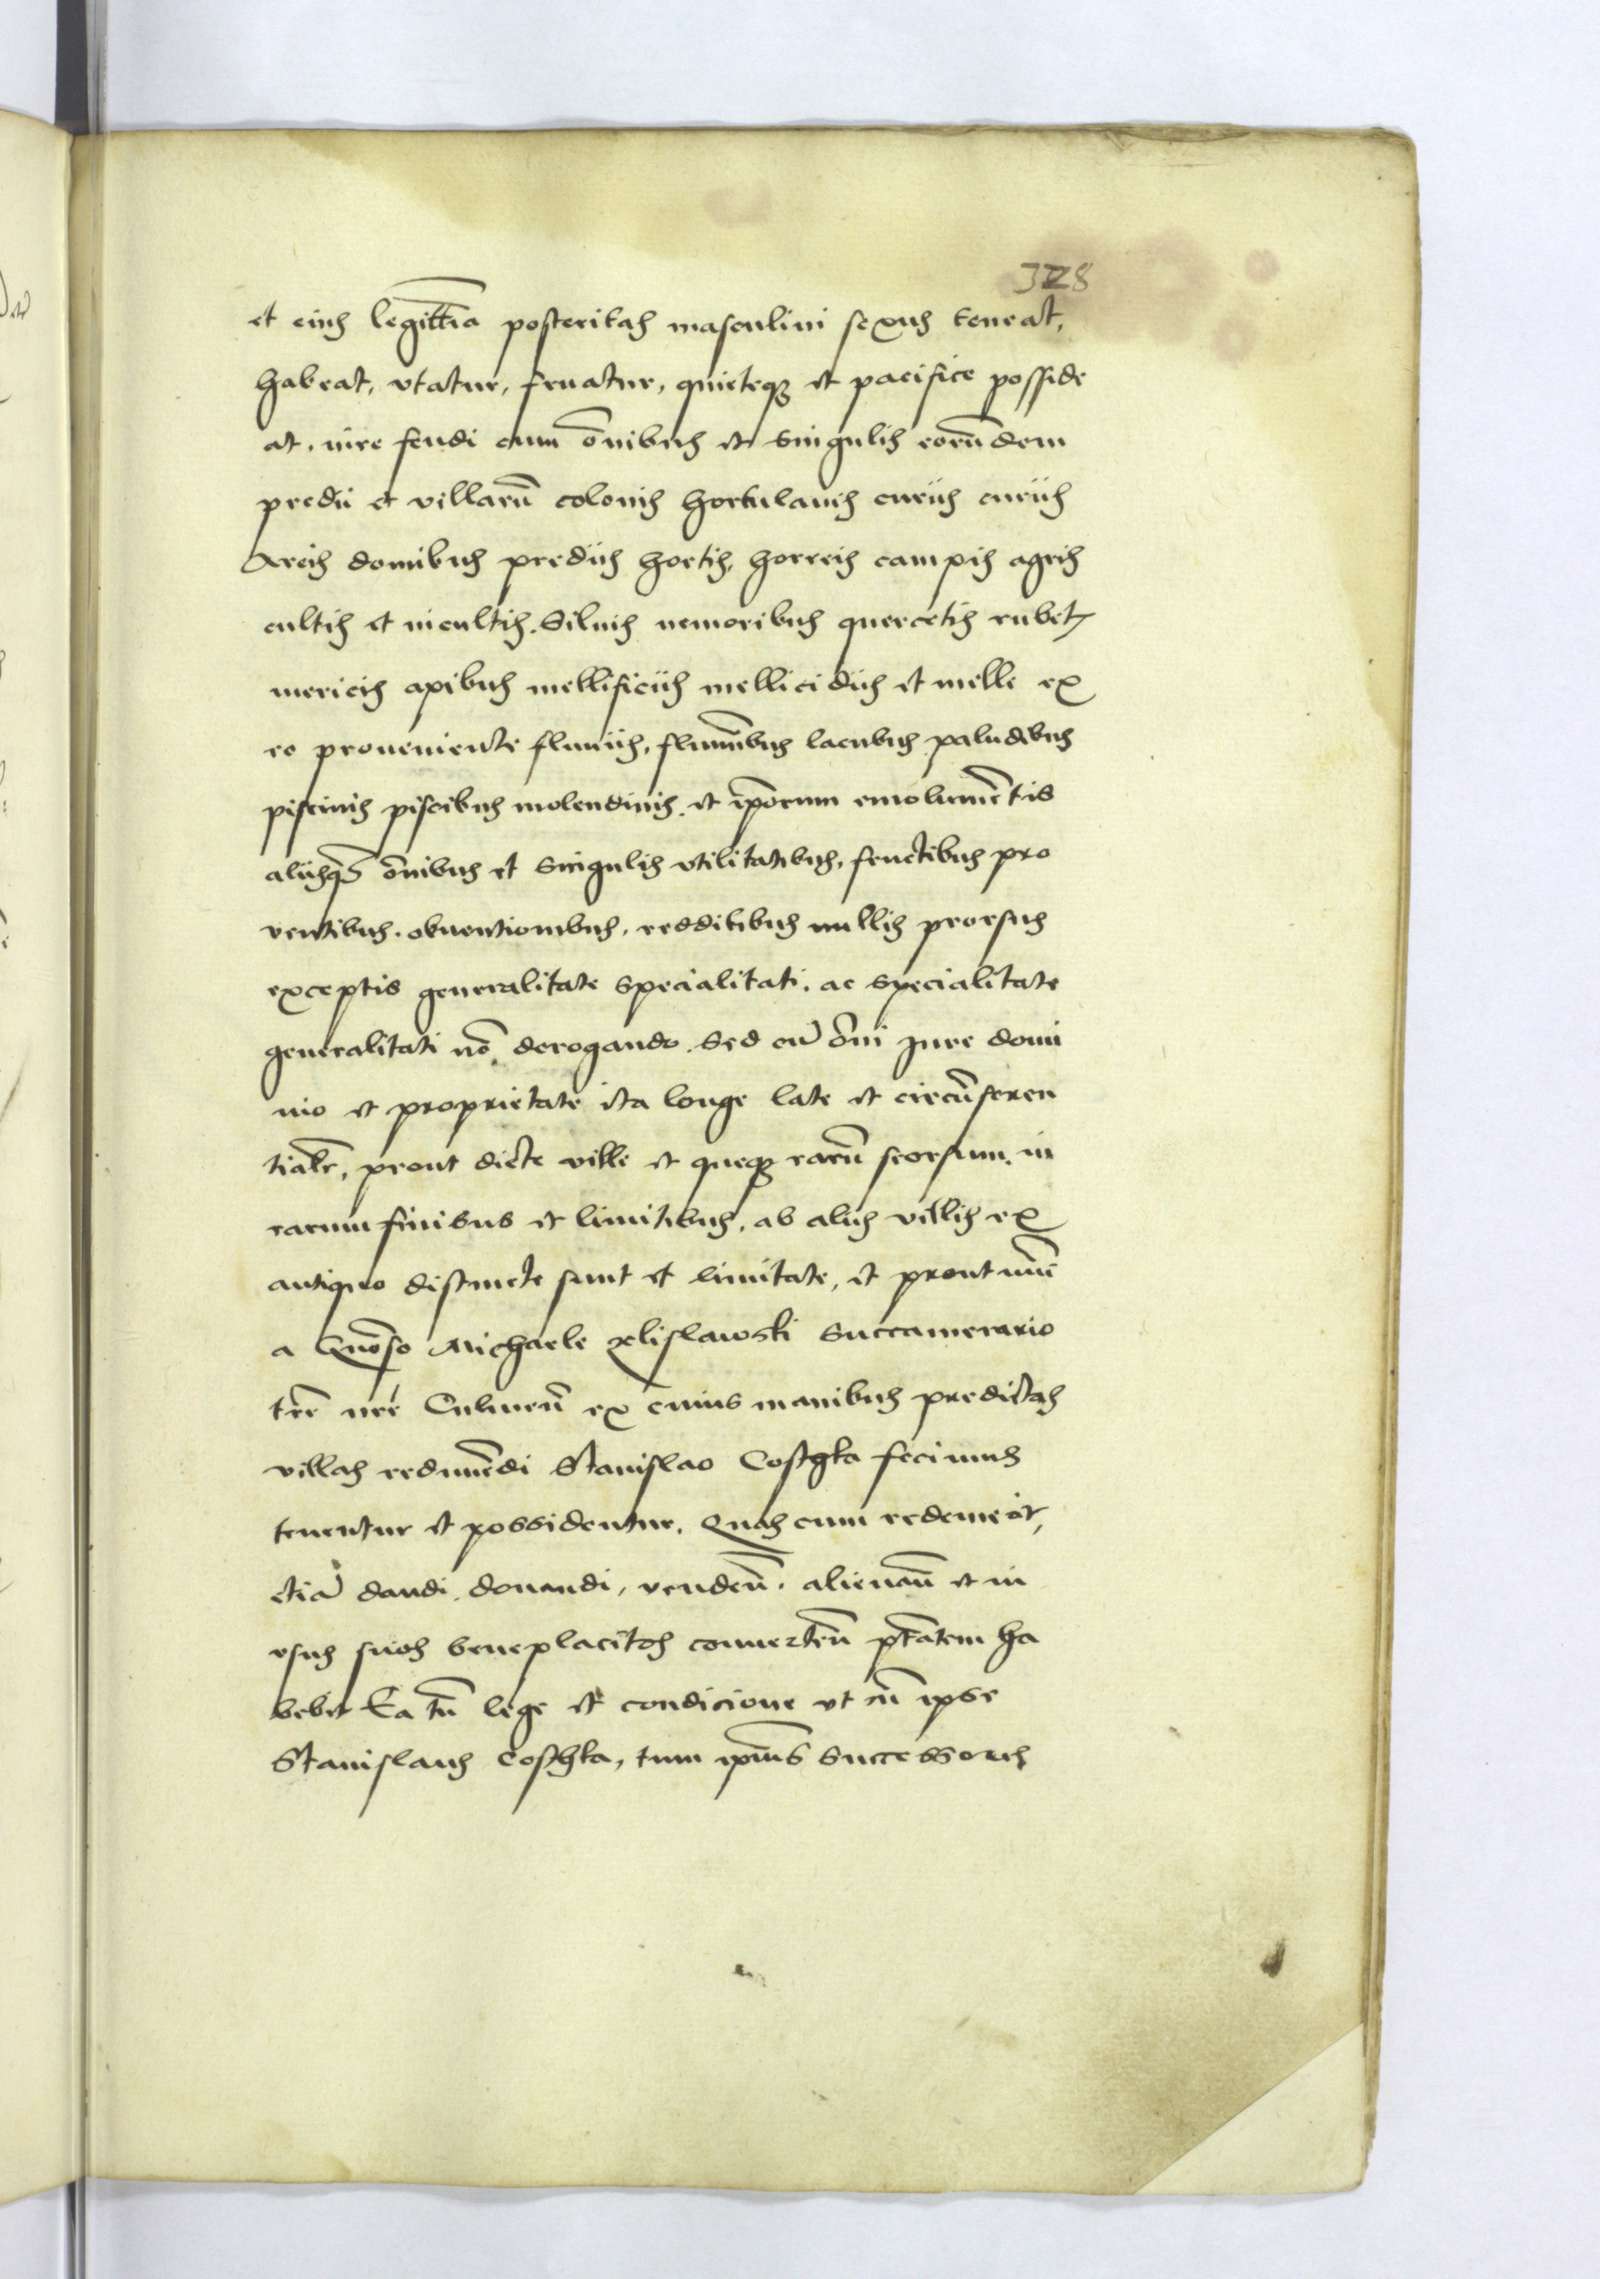 328
et eius legittīa posteritas masculini sexus teneat,
habeat, vtatur, fruatur, quieteqȝ et pacifice posside
at. iure feudi cum ōnibus et singulis eorūdem
predii et villarū colonis hortulanis curiis curiis
Areis domibus prediis hortis, horreis campis agris
cultis et incultis. Siluis nemoribus quercetis rubetꝭ
mericis apibus mellificiis mellicidiis et melle ex
eo proueniente fluuiis, fluminībus lacubus paludibus
piscinis piscibus molendinis. et ip̄orum emolumētis
aliisqȝ ōnibus et singulis vtilitatibus, fructibus pro
ventibus. obuentionibus, redditibus nullis prorsus
exceptis generalitate specialitati. ac specialitate
generalitati nō derogando. sed cū ōni Jure domi
nio et proprietate ita longe late et circūferen
tialr̄, prout dicte ville et queqȝ earū seorsum. in
earum finibus et limitibus, ab aliis villis ex
antiquo distincte sunt et limitate, et prout nūc
a Gn̄oso Michaele Zelislawski succamerario
tr̄e nr̄e Culmeñ ex cuius manibus predictas
villas redimēdi Stanislao Costhka fecimus
tenentur et possidentur. Quas cum redemerit,
etiā dandi. donandi, vendeñ. alienañ et in
vsus suos beneplacitos conuerteñ pt̄atem ha
bebit Ea tn̄ lege et condicione vt cū ipse
Stanislaus Costhka, tum ip̄ius successores